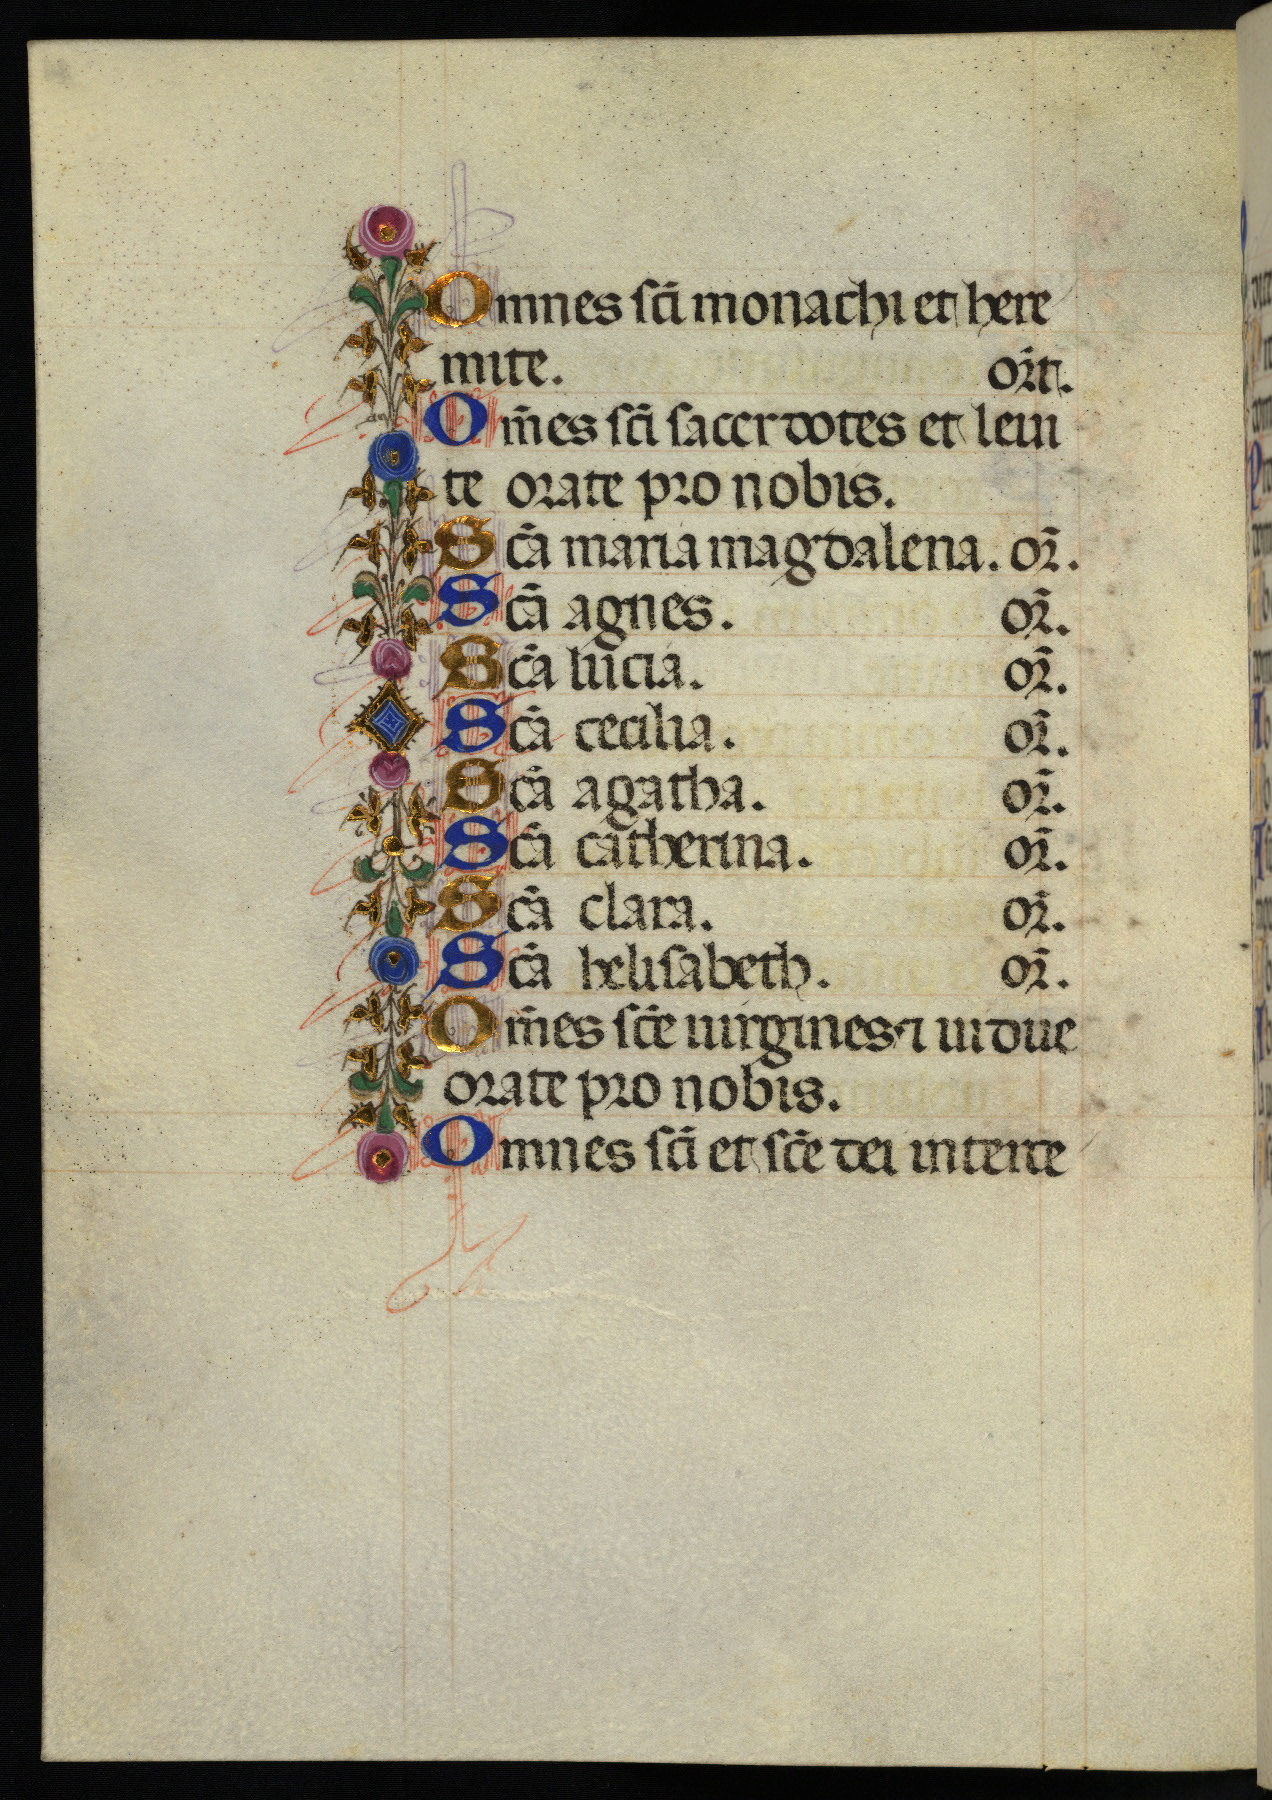 Omnes sci̅ monachi et here
mite. or̅t.
Om̅es sci̅ sacerdotes et leui
te orate pro nobis.
Sc̅a maria magdalena. or̅.
Sc̅a agnes. or̅.
Sc̅a lucia. or̅.
Sc̅a cecilia. or̅.
Sc̅a agatha. or̅.
Sc̅a catherina. or̅.
Sc̅a clara. or̅.
Sc̅a helisabeth. or̅.
Om̅es sc̅e uirgines ⁊ uidue
orate pro nobis.
Omnes sci̅ et sc̅e dei interce